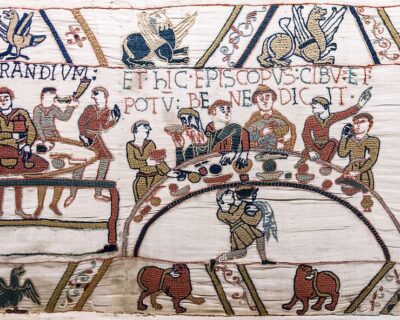 RANDIUM:
ET·hIC·EPISCOPUS:CIBU:ET
POTU: BE NE DIC IT·